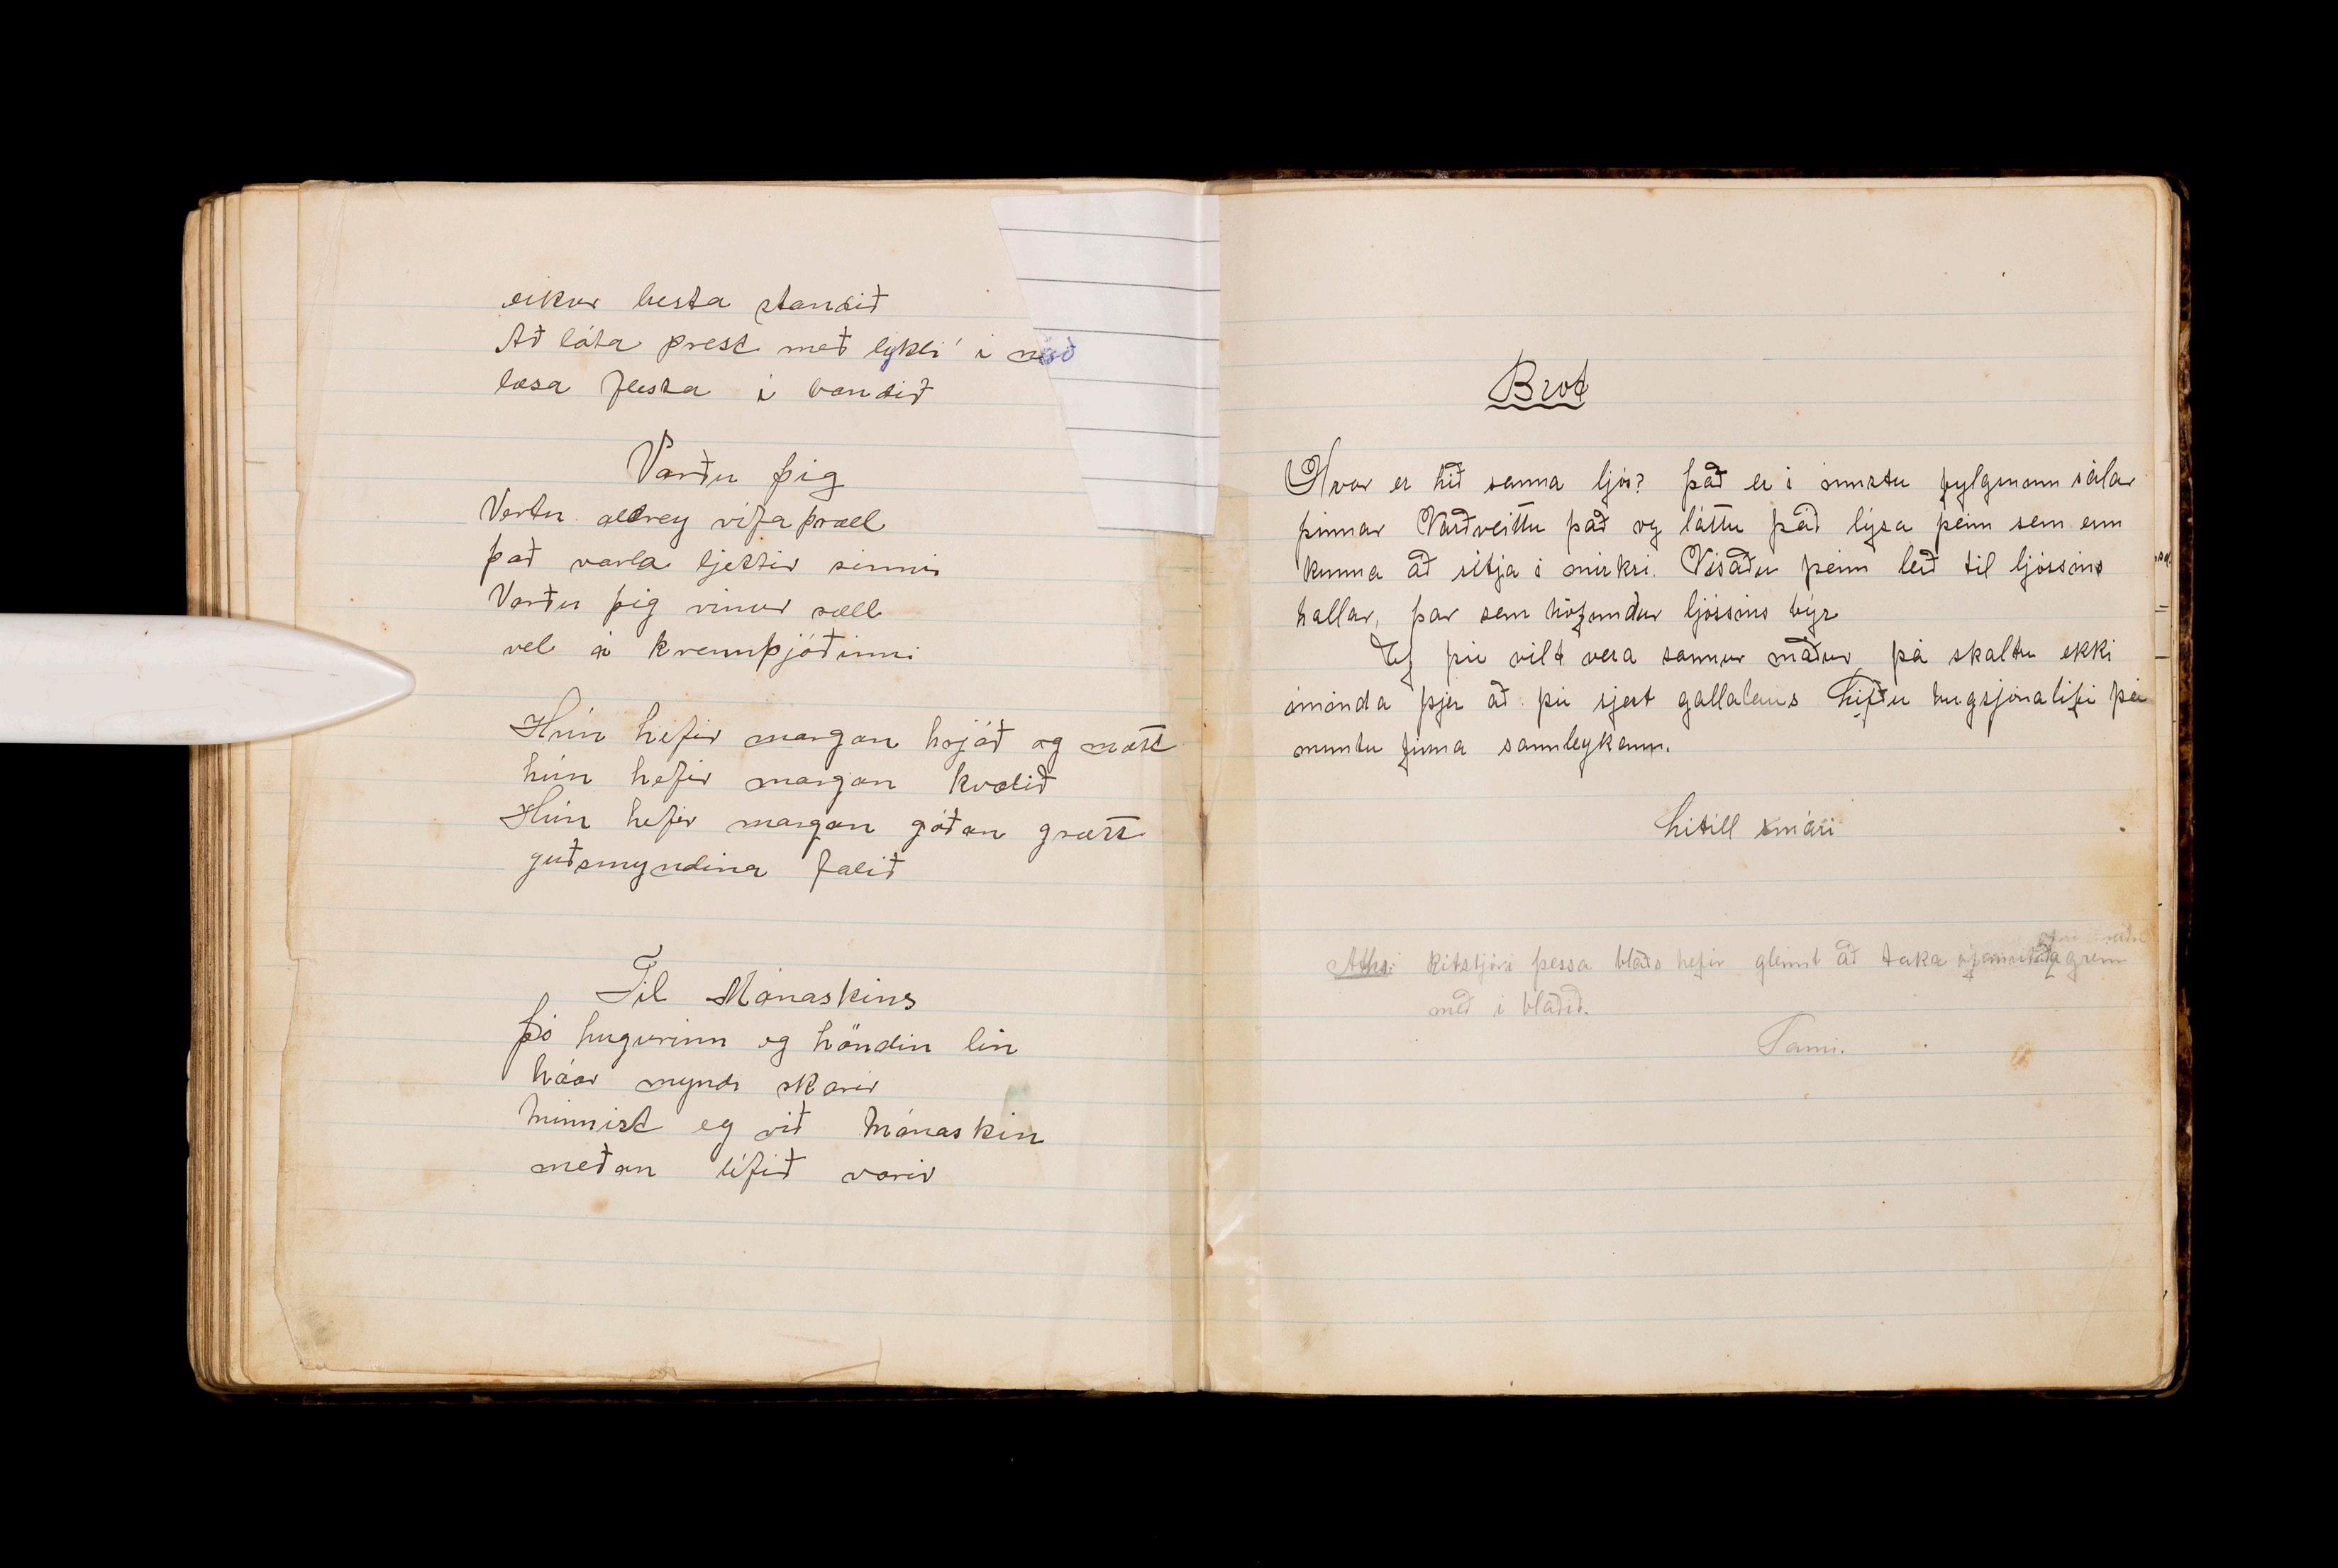 eikur besta standið
Að láta prest með lykli í náð
læsa flesta í bandið
Varðu þig
Vertu aldrey vífa þræll
það varla ljettir sinni
Varðu þig vinur sæll
vel á kvennþjóðinni
Hún hefir margan hrjáð og mætt
hún hefir margan kvalið
Hún hefir margan góðan grætt
guðsmyndina falið
Til Mánaskins
Þó hugurinn og höndin lin
háar myndi skarir
Minnist eg við Mánaskin
meðan lífið varir
Brot
Hvar er hið sanna ljós? Það er i innstu fylgsnum sálar
þinnar Varðveittu það og láttu það lýsa þeim sem enn
kunna að sitja i mirkri. Vísaðu þeim leið til ljóssins
hallar, þar sem höfundur ljóssins býr
Ef þú vilt vera sannur maður þá skaltu ekki
ímínda þjer að þú sjert gallalaus Lifðu hugsjónalífi þá
muntu finna sannleykann.
Litill smári
Aths: Ritstjóri þessa blaðs hefir gleimt að taka grein
með i blaðið.
Tami.